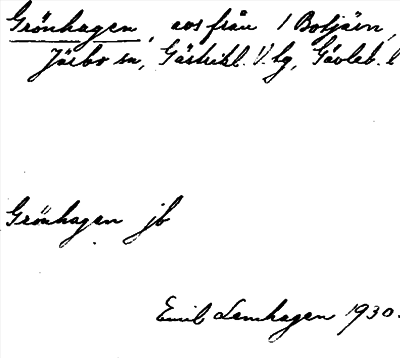 Grönhagen, avs från 1 Botjärn,
Järbo sn, Gästrikl. V. tg, Gävleb. l
Grönhagen jb
Emil Lennhagen 1930.